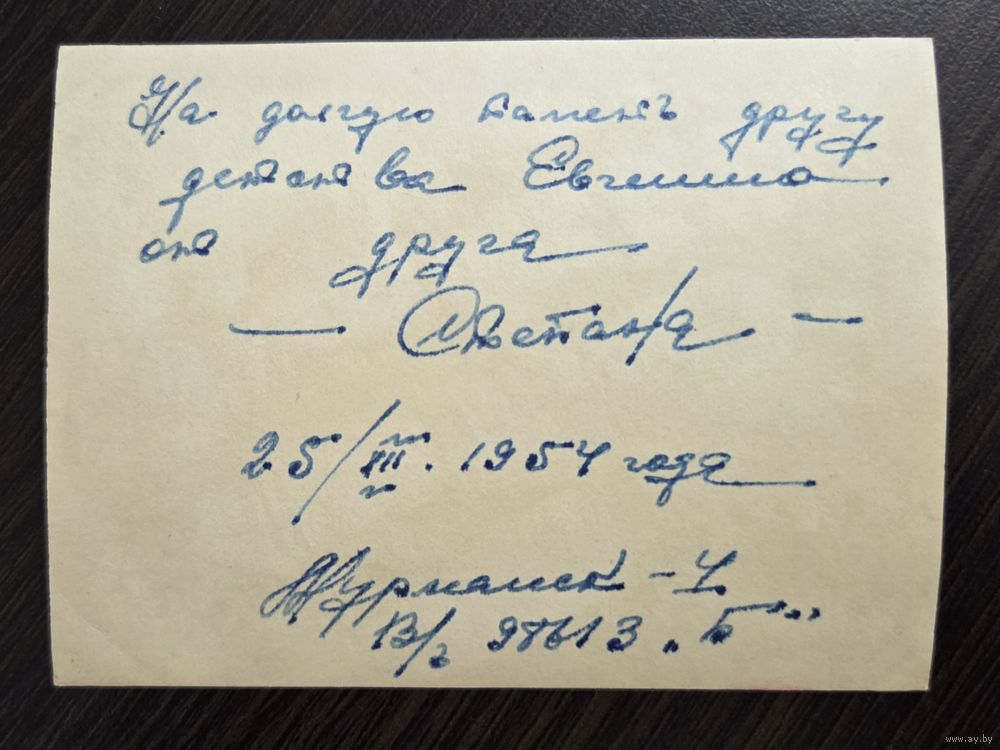 На долгую память другу
детства Евгению
от друга
— Светана —
25/III. 1954 года
Мурманск - 4
В/ч 98613 „Б“
www.ay.by